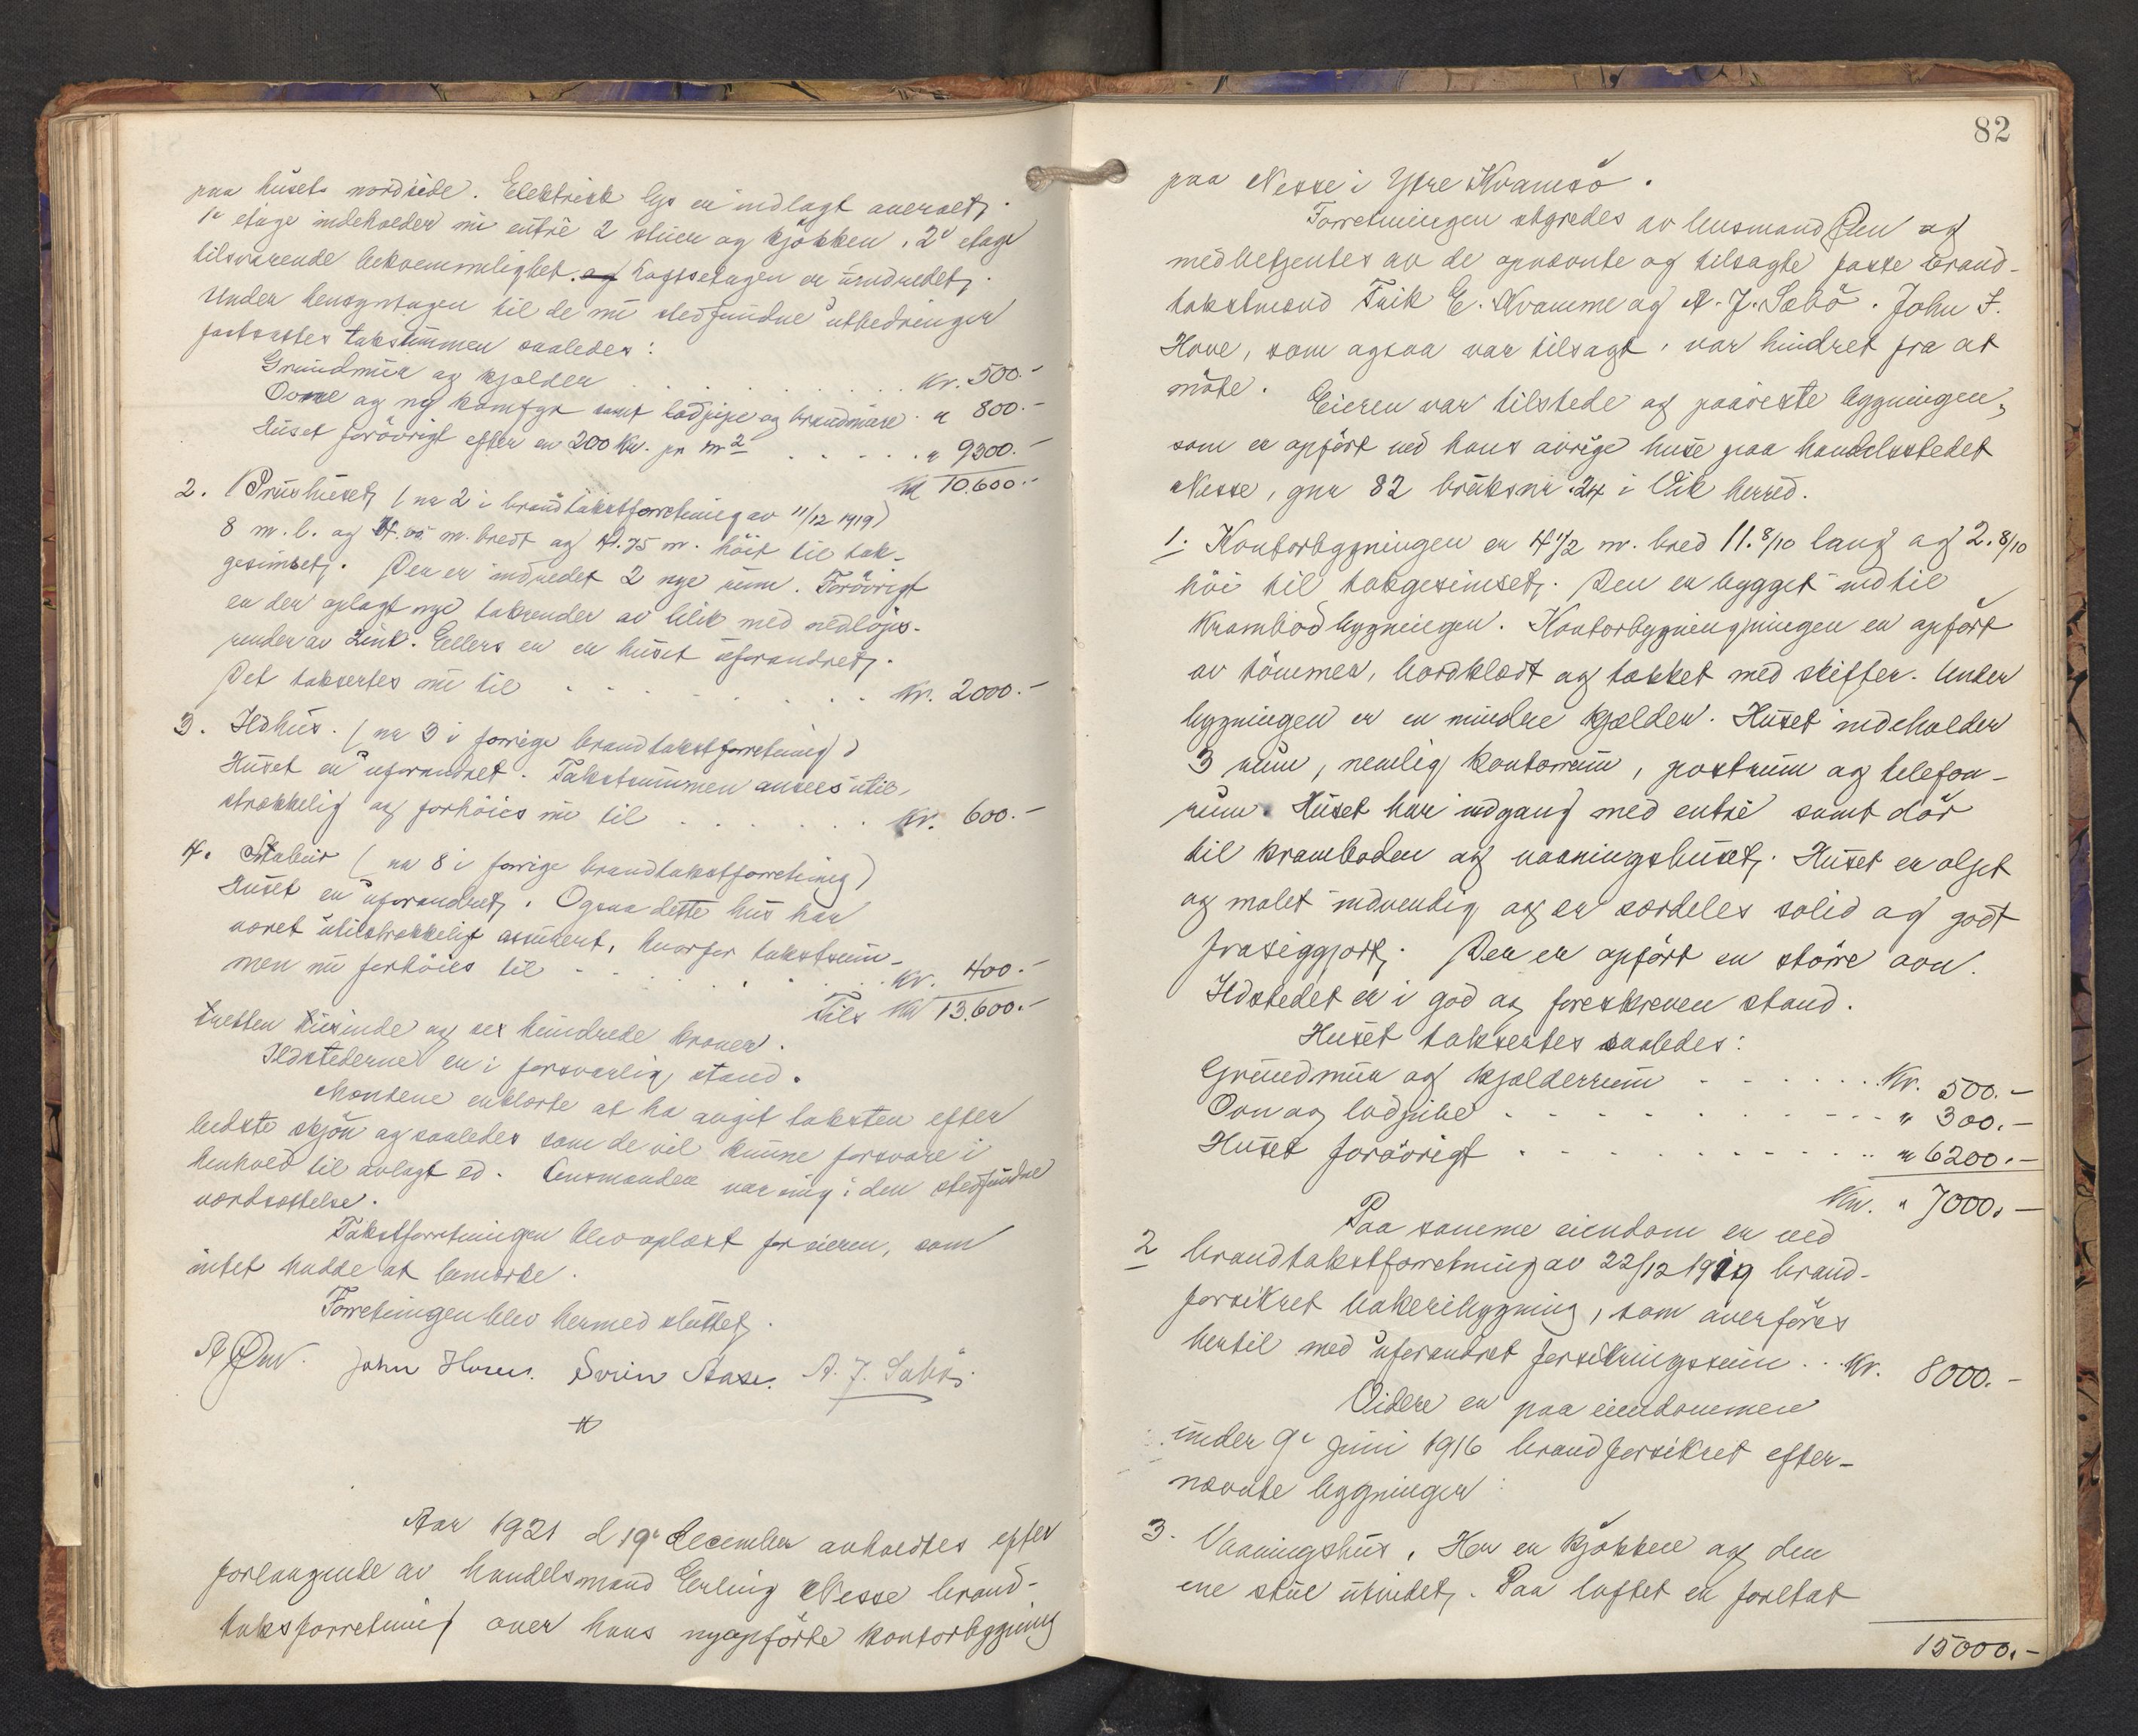 paa husets nordside. Elektrisk lys er indlagt overalt.
1e etage indeholder nu entrè 2 stuer og kjøkken. 2e etage
tilsvarende bekvemmelighet. og Loftsetagen er uindredet.
Under hensyntagen til de nu stedfundne utbedringer
fastsattes takstsummen saaledes:
Grundmur og kjælder . . . . . . . . Kr. 500.-
Ovne og ny komfyr samt lodpipe og brandmure. " 800.-
Huset forøvrigt efter en 200 Kr. pr. m2 . . . . . " 9300.-
Kr 10.600.-
2. Prushuset, (nr 2 i brandtakstforretning av 11/12 1919)
8 m. l. og 4.00 m. bredt og 4.75 m. höit til tak-
gesimset. Der er indredet 2 nye rum. Forøvrigt
er der oplagt nye takrender av blik med nedløps-
render av Zink. Ellers er er huset uforandret.
Det taksertes nu til . . . . . . . . Kr. 2000.-
3. Ildhus. (nr 3 i forrige brandtakstforretning)
Huset er uforandret. Takstsummen ansees util-
strækkelig og forhöies nu til . . . . . . Kr. 600.-
4. Stabur (nr 8 i forrige brandtakstforretning)
Huset er uforandret. Ogsaa dette hus har
været utilstrækkelig assurert, hvorfor takstsum-
men nu forhöies til . . . . . . . Kr. 400.-
Tils Kr 13.600.-
tretten tusinde og sex hundrede kroner.
Ildstederne er i forsvarlig stand.
Mændene erklærte at ha avgit taksten efter
bedste skjön og saaledes som de vil kunne forsvare i
henhold til avlagt ed. Lensmanden var enig i den stedfundne
værdsættelse.
Takstforretningen blev oplæst for eieren, som
intet hadde at bemærke.
Forretningen blev hermed sluttet.
A Øren. John Hovem. Svein Aase. A. J. Sæbö.
Aar 1921 d 19e december avholdtes efter
forlangende av handelsmand Erling Nesse brand-
takstforretning over hans nyopförte kontorbygning
82
paa Nesse i Ytre Kvamsö.
Forretningen styredes av lensmand Øren og
medbetjentes av de opnævnte og tilsagte faste brand-
takstmænd Eirik E. Kvamme og A. J. Sæbö. John I.
Hove, som ogsaa var tilsagt, var hindret fra at
möte. Eieren var tilstede og paaviste bygningen,
som er opfört ved hans övrige huse paa handelsstedet
Nesse, gnr 82 bruksnr. 24 i Vik herred.
1. Kontorbygningen er 4 1/2 m. bred 11.8/10 lang og 2.8/10
höi til takgesimset. Den er bygget ind til
Krambodbygningen. Kontorbygningningen er opfört
av tömmer, bordklædt og tækket med skiffer. Under
bygningen er en mindre kjælder. Huset indeholder
3 rum, nemlig kontorrum, postrum og telefon-
rum. Huset har indgang med entrè samt dör
til kramboden og vaaningshuset. Huset er oljet
og malet indvendig og er særdeles solid og godt
fraseggjort. Der er opfört en större ovn.
Ildstedet er i god og foreskreven stand.
Huset taksertes saaledes:
Grundmur og kjælderrum . . . . . . Kr. 500.-
Ovn og lodpibe . . . . . . . . . " 300.-
Huset forövrigt . . . . . . . . . " 6200.-
Kr. " 7000.-
Paa samme eiendom er ved
2 brandtakstforretning av 22/12 1919 brand-
forsikret bakeribygning, som överföres
hertil med uforandret forsikringssum . . Kr. 8000.-
Videre er paa eiendommen
under 9e Juni 1916 brandforsikret efter-
nævnte bygninger:
3. Vaaningshus. Her er kjøkken og den
ene stue utvidet. Paa loftet er foretat
15000.-